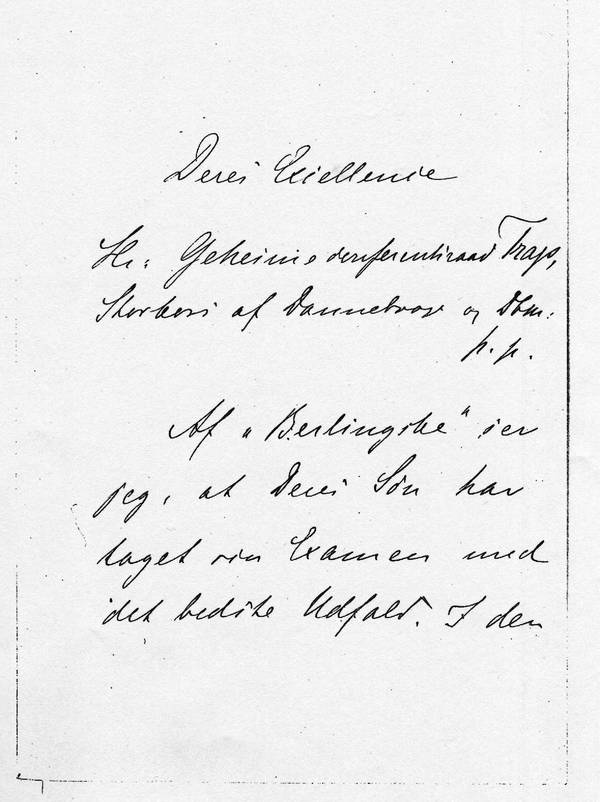 Deres Excellence
Hr. Geheimeconferentsraad Trap,
Storkors af Dannebrog og Dbm.
p. p.
Af „Berlingske" ser
jeg, at Deres Søn har
taget sin Examen med
det bedste Udfald. I den